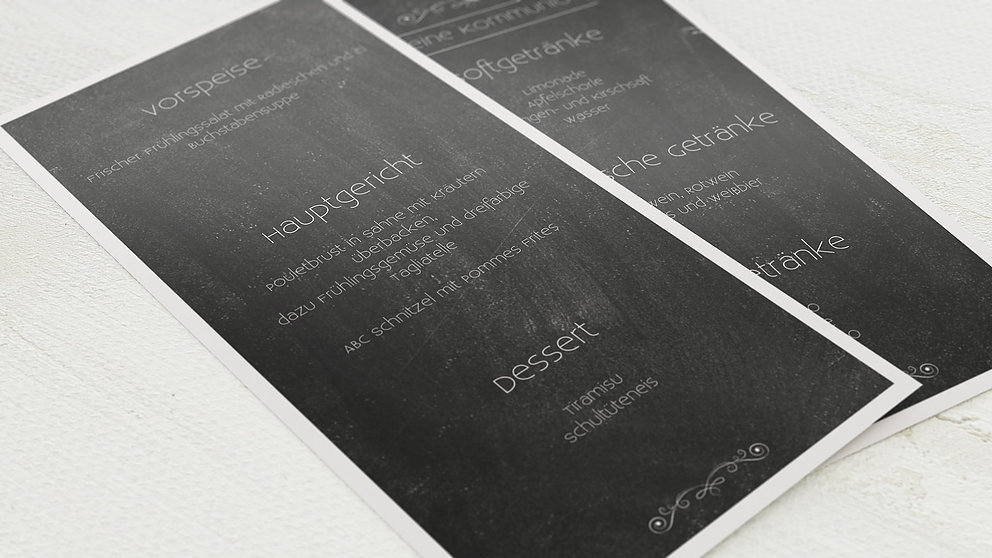 Vorspeise
Frischer Frühlingssalat mit Radieschen und Ei
Buchstabensuppe
Hauptgericht
Pouletbrust in Sahne mit Kräutern
überbacken,
dazu Frühlingsgemüse und dreifarbige
Tagliatelle
ABC Schnitzel mit Pommes Frites
Dessert
Tiramisu
Schultüteneis
eine Kommunio
oftgetränke
Limonade
Apfelschorle
ngen- und Kirschsaft
Wasser
sche Getränke
wein, Rotwein
s und Weißbier
etränke